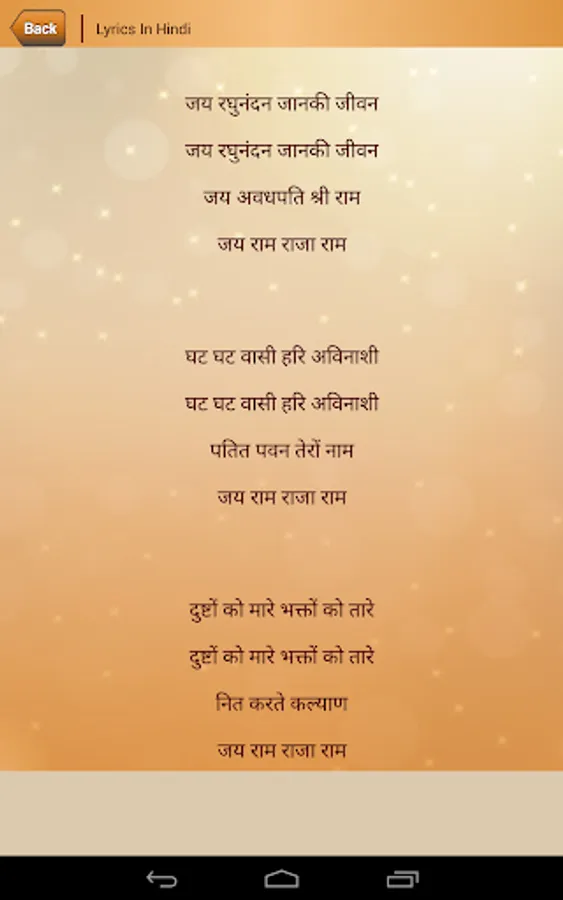 Back
Lyrics In Hindi
जय रघुनंदन जानकी जीवन
जय रघुनंदन जानकी जीवन
जय अवधपति श्री राम
जय राम राजा राम
घट घट वासी हरि अविनाशी
घट घट वासी हरि अविनाशी
पतित पवन तेरों नाम
जय राम राजा राम
दुष्टों को मारे भक्तों को तारे
दुष्टों को मारे भक्तों को तारे
नित करते कल्याण
जय राम राजा राम